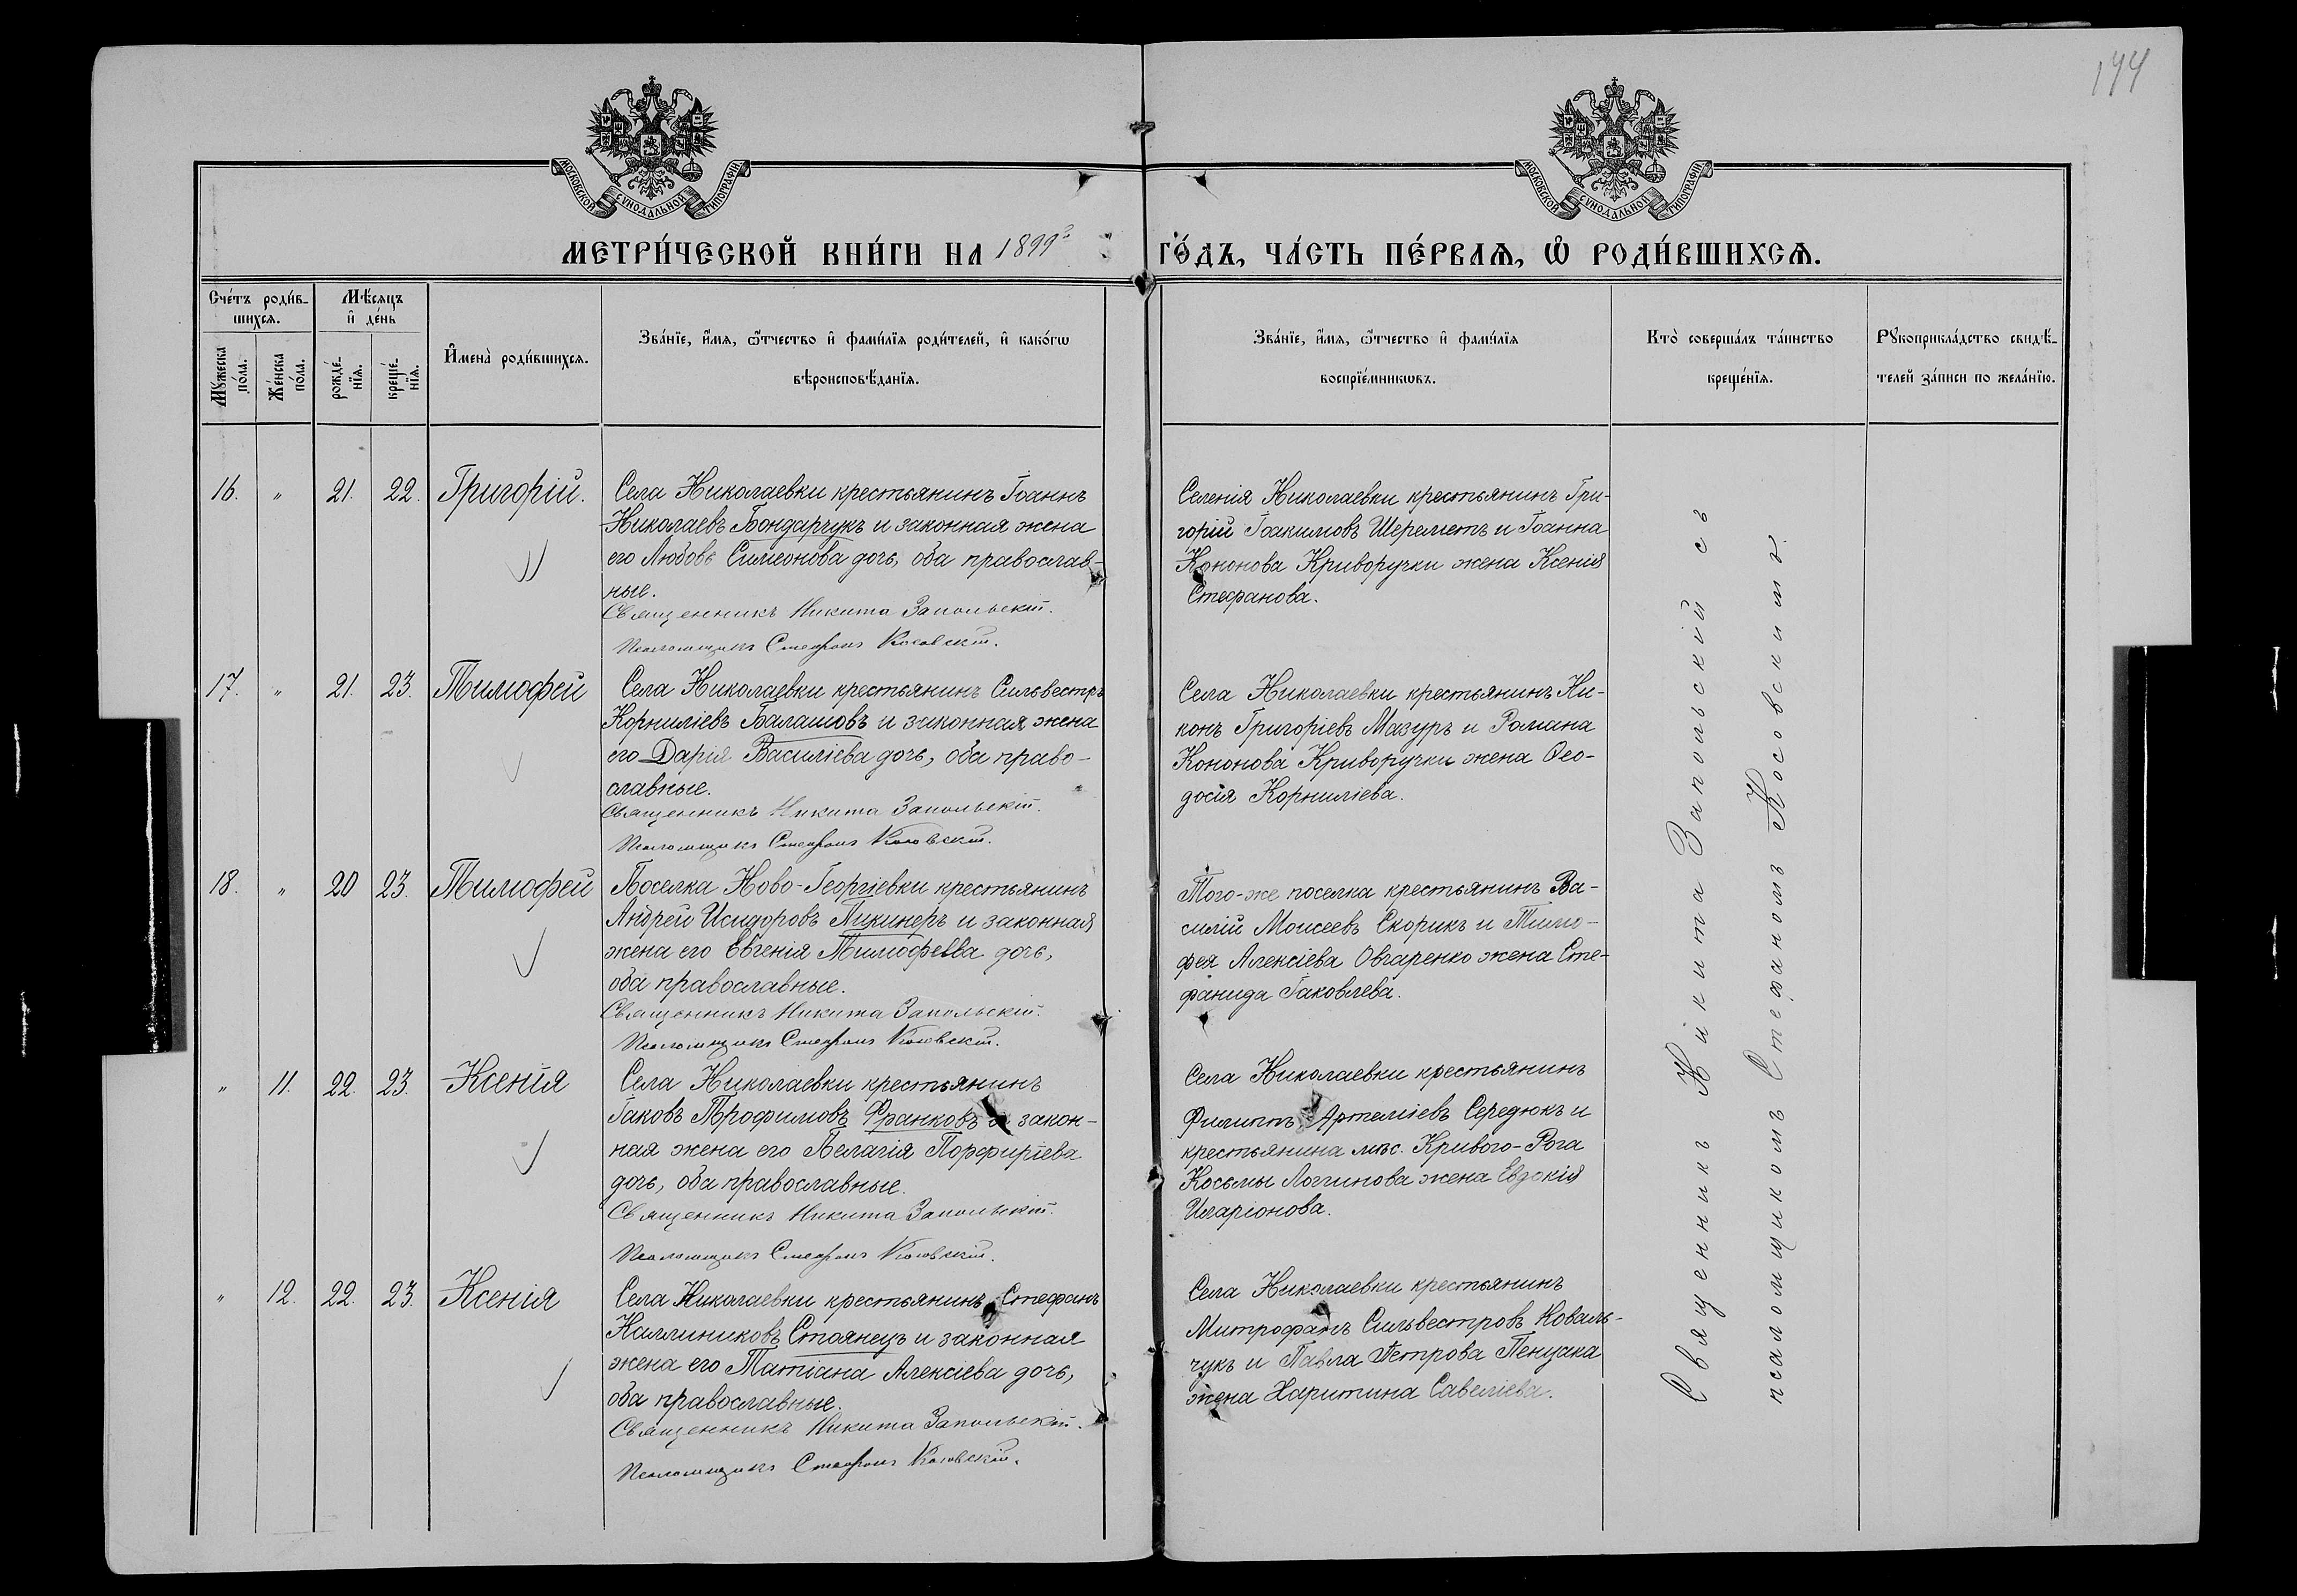 144
МОСКОВСКОЙ СУНОДАЛЬНОЙ ТИПОГРАФІИ.
МОСКОВСКОЙ СУНОДАЛЬНОЙ ТИПОГРАФІИ.
МЕТРИ́ЧЕСКОЙ КНИ́ГИ НА 1899 ГО́ДЪ, ЧА́СТЬ ПЕ́РВАѦ, Ѡ҆ РОДИ́ВШИХСѦ.
Сче́тъ роди́в-
шихсѧ.
Мѣ́сѧцъ
и҆ де́нь
Мꙋ́жеска
по́ла.
Же́нска
по́ла.
рожде́-
нїѧ.
креще́-
нїѧ.
И҆мена̀ роди́вшихсѧ.
Зва́нїе, и҆́мѧ, ѻ҆́тчество и҆ фами́лїѧ роди́телей, и҆ како́гѡ
вѣроисповѣ́данїѧ.
Зва́нїе, и҆́мѧ, ѻ҆́тчество и҆ фами́лїѧ
воспрїе́мникѡвъ.
Кто̀ соверша́лъ та́инство
креще́нїѧ.
Рꙋкоприкла́дство свидѣ́-
телей за́писи по жела́нїю.
16. " 21. 22. Григорій.
Села Николаевки крестьянинъ Іоаннъ
Николаевъ Бондарчукъ и законная жена
его Любовь Симеонова дочь, оба православ-
ные.
Священникъ Никита Запольскій.
Псаломщикъ Стефанъ Косовскій.
Селенія Николаевки крестьянинъ Гри-
горій Іоакимовъ Шереметъ и Іоанна
Кононова Криворучки жена Ксенія
Стефанова.
17. " 21. 23. Тимофей
Села Николаевки крестьянинъ Сильвестръ
Корниліевъ Балашовъ и законная жена
его Дарія Василіева дочь, оба право-
славные.
Священникъ Никита Запольскій.
Псаломщикъ Стефанъ Косовскій.
Села Николаевки крестьянинъ Ни-
конъ Григоріевъ Мазуръ и Романа
Кононова Криворучки жена Ѳео-
досія Корниліева.
18. " 20 23. Тимофей
Поселка Ново-Георгіевки крестьянинъ
Андрей Исидоровъ Пикинеръ и законная
жена его Евгенія Тимофеева дочь,
оба православные.
Священникъ Никита Запольскій.
Псаломщикъ Стефанъ Косовскій.
Того-же поселка крестьянинъ Ва-
силій Моисеевъ Скорикъ и Тимо-
фея Алексіева Овчаренко жена Сте-
фанида Іаковлева.
" 11. 22. 23. Ксенія
Села Николаевки крестьянинъ
Іаковъ Трофимовъ Франковъ и закон-
ная жена его Пелагія Порфиріева
дочь, оба православные.
Священникъ Никита Запольскій.
Псаломщикъ Стефанъ Косовскій.
Села Николаевки крестьянинъ
Филиппъ Артеміевъ Середюкъ и
крестьянина мѣс. Кривого-Рога
Косьмы Логгинова жена Евдокія
Иларіонова.
" 12. 22. 23. Ксенія
Села Николаевки крестьянинъ Стефанъ
Каллиниковъ Стоянецъ и законная
жена его Татіана Алексіева дочь,
оба православные.
Священникъ Никита Запольскій.
Псаломщикъ Стефанъ Косовскій.
Села Николаевки крестьянинъ
Митрофанъ Сильвестровъ Коваль-
чукъ и Павла Петрова Пенцака
жена Харитина Савеліева.
Священникъ Никита Запольскій съ
псаломщикомъ Стефаномъ Косовскимъ.